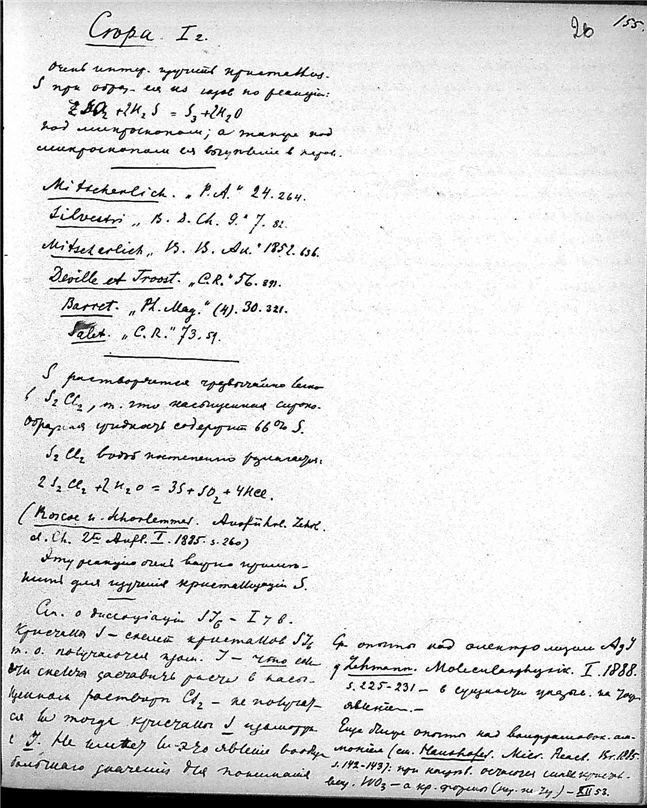 Сгора. I г.
26
155.
очень интер. изучить кристаллиз.
S при образ. ея из газов по реакціи:
SO2 + 2H2S = S3 + 2H2O
под микроскопом; а также под
микроскопом ея в парах.
Mitscherlich. „P.A." 24. 264.
Silvestri „B. D. Ch. G." 7. 82.
Mitscherlich „B. B. Ak." 1852. 636.
Deville et Troost. „C.R." 56. 891.
Barret. „Ph. Mag." (4). 30. 321.
Salet. „C.R." 73. 59.
S растворяется чрезвычайно легко
в S2Cl2, т. что насыщенная сиропо-
образная жидкость содержит 66% S.
S2Cl2 водой постепенно разлагается:
2S2Cl2 + 2H2O = 3S + SO2 + 4HCl.
(Roscoe u. Schorlemmer. Ausführl. Lehrb.
d. Ch. 2te Aufl. I. 1885. s. 260)
Эту реакцию очень важно приме-
нить для изучения кристаллизаціи S.
См. о диссоціаціи SJ6 – I 7 8.
Кристаллы S – скелет кристаллов SJ6
т. о. получаются J – что если
эти скелеты заставить расти в насы-
щенном растворе CS2 – не получат-
ся ли тогда кристаллы S изоморфн.
с J. Не имеет ли это явление вообще
большого значения для понимания
Ср. опыты над электролизом AgJ
у Lehmann. Molecularphysik. I. 1888.
s. 225-231 – в сущности на
явление. –
Еще опыты над ам-
монием (см. Haushofer. Micr. React. Br. 1885.
s. 142-143): при остаются
WO3 – а кр. формы – XII 53.